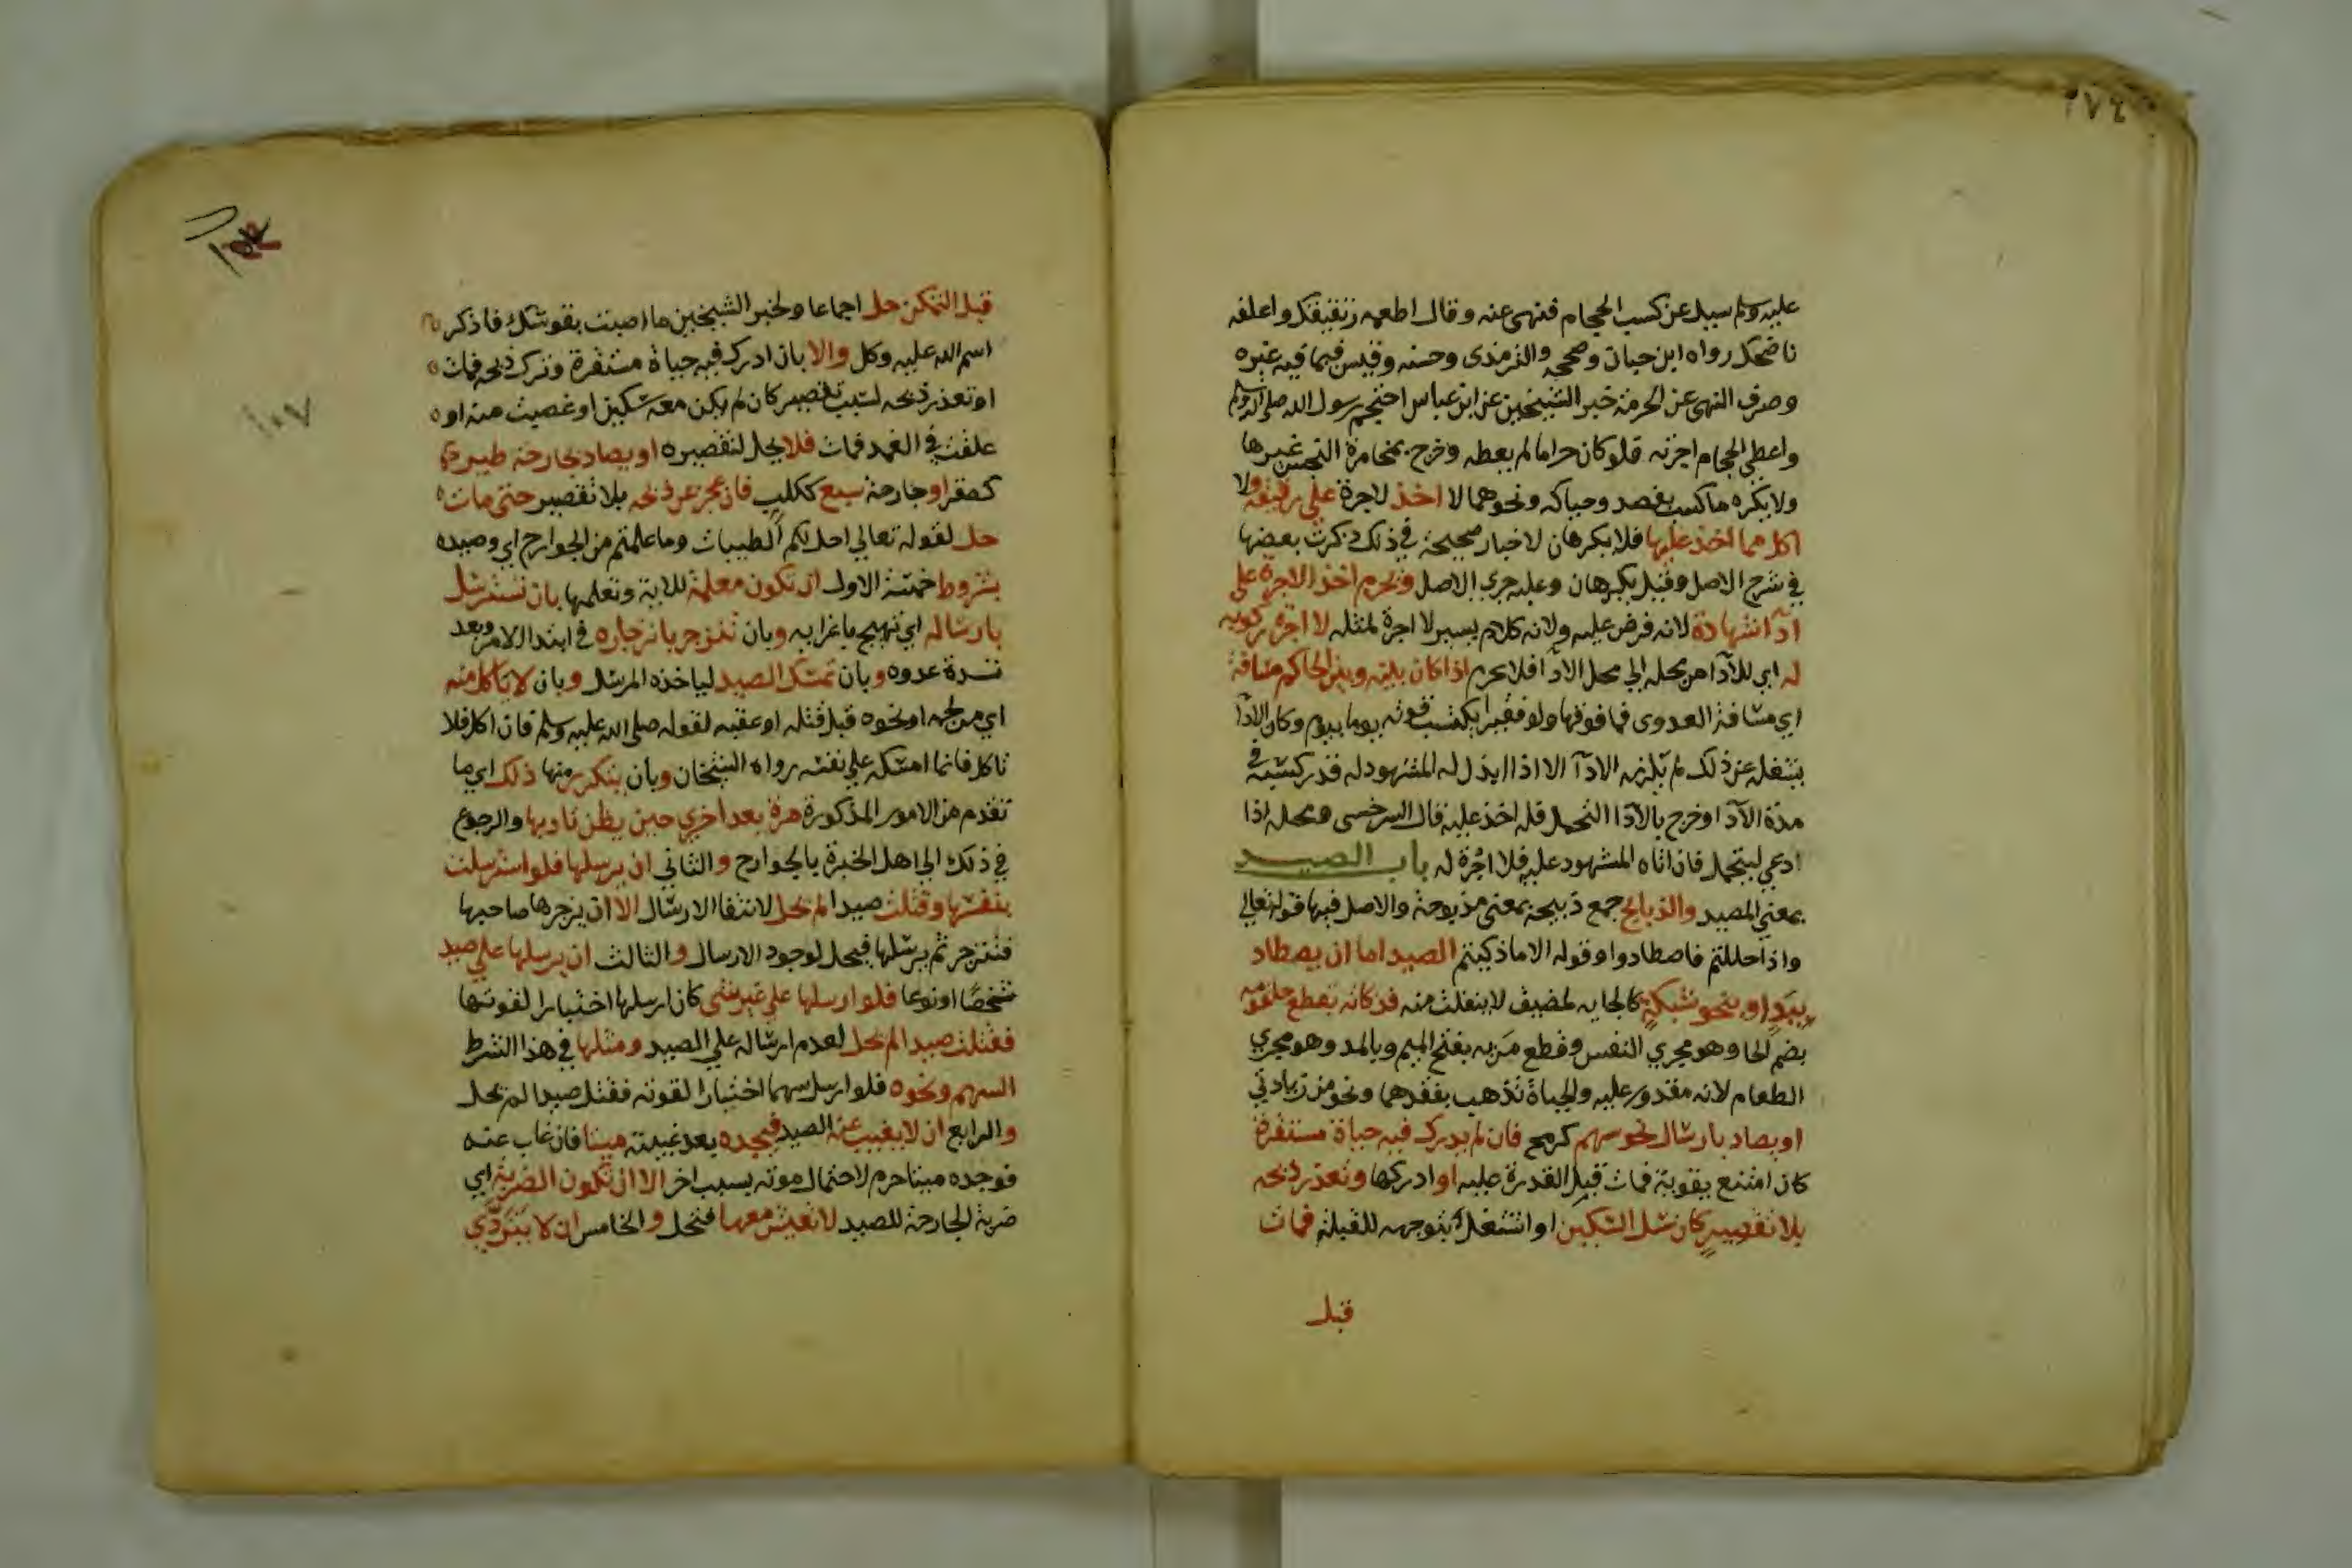 ١٧٤
عليه وسلم سيل عن كسب الحجام فنهى عنه وقال اطعمه رقيقك واعلفه
ناضحك رواه ابن حبان وصححه والترمذى وحسنه وقيس فيما فيه غيره
وصرف النهى عن الحرمة خبر الشيخين عن ابن عباس احتجم رسول الله صلى الله عليه وسلم
واعطي الحجام اجرته فلو كان حراما لم يعطه وخرج بمخامرة النجس غيرها
ولا يكره ما كسب بفصد وحياكه ونحوهما لا اخذ لاجرة علي رقيقه ولا
اكل مما اخذ عليها فلا يكرهان لاخبار صحيحة في ذلك ذكرت بعضها
في شرح الاصل وقيل يكرهان وعليه جري الاصل وتحرم اخذ الاجرة على
ادآ الشهادة لانه فرض عليه ولانه كلام يسير لا اجرة لمثله لا اجرة ركوبه
له اي للادآ من محله الي محل الادآ فلا يحرم اذا كان بينه وبين الحاكم مسافة
اي مسافة العدوى فما فوقها ولو فقيرا يكتسب قوته يوما بيوم وكان الادآ
يشغله عن ذلك لم يلزمه الادآ الا اذا ابذل له المشهود له قدر كسبه في
مدة الادآ وخرج بالادآ التحمل فله اخذ عليه قال السرخسى محله اذا
ادعي ليتحمل فان اتاه المشهود عليه فلا اجرة له باب الصيد
بمعني المصيد والذبايح جمع ذبيحة بمعنى مذبوحة والاصل فيها قوله تعالي
واذا حللتم فاصطادوا وقوله الا ما ذكيتم الصيد اما ان يصطاد
بيد او بنحو شبكة كالجايه لمضيق لا ينفلت منه فذكاته بقطع حلقومه
بضم الحا وهو مجري النفس وقطع مريه بفتح الميم وبالمد وهو مجري
الطعام لانه مقدور عليه والحياة تذهب بفقدهما ونحو من زيادتي
او يصاد بارسال نحو سهم كرمح فان لم يدرك فيه حياة مستقرة
كان امتنع بقوته فمات قبل القدرة عليه او ادركها وتعذر ذبحه
بلا تقصير كان سل السكين او اشتغل بتوجهه للقبلة فمات
قبل
قبل التمكن حل اجماعا ولخبر الشيخين ما اصبت بقوسك فاذكر
اسم الله عليه وكل والا بان ادرك فيه حياة مستقرة وترك ذبحه فمات
او تعذر ذبحه لسبب تقصير كان لم يكن معه سكين او غصبت منه او
علقت في الغمد فمات فلا يحل لتقصيره او يصاد بجارحة طير
كصقر او جارحة سبع ككلب فان عجز عن ذبحه بلا تقصير حتى مات
حل لقوله تعالي احل لكم الطيبات وما علمتم من الجوارح اي وصيده
بشروط خمسة الاول ان تكون معلمة للاية وتعلمها بان تسترسل
بارساله اي تهيج باغرايه وبان تنزجر بانزجاره في ابتدا الامر وبعد
شدة عدوه وبان تمسك الصيد لياخذه المرسل وبان لا ياكل منه
اي من لحمه او نحوه قبل قتله او عقبه لقوله صلى الله عليه وسلم فان اكل فلا
تاكل فانما امسكه علي نفسه رواه الشيخان وبان يتكرر منها ذلك اي ما
تقدم من الامور المذكورة مرة بعد اخري حين يظن تاديبها والرجوع
في ذلك الي اهل الخبرة بالجوارح والثاني ان يرسلها فلو استرسلت
بنفسها وقتلت صيدا لم يحل لانتفا الارسال الا ان يزجرها صاحبها
فتنزجر ثم يرسلها فيحل لوجود الارسال والثالث ان يرسلها علي صيد
شخصا او نوعا فلو ارسلها علي غير شى كان ارسلها اختبارا لقوتها
فقتلت صيدا لم يحل لعدم ارساله علي الصيد ومثلها في هذا الشرط
السهم ونحوه فلو ارسل سهما اختبارا لقوته فقتل صيدا لم يحل
والرابع ان لا يغيب عنه الصيد فيجده بعد غيبته ميتا فان غاب عنه
فوجده ميتا حرم لاحتمال موته بسبب اخر الا ان تكون الضربة اي
ضربة الجارحة للصيد لا تعيش معها فتحل والخامس ان لا يتردي